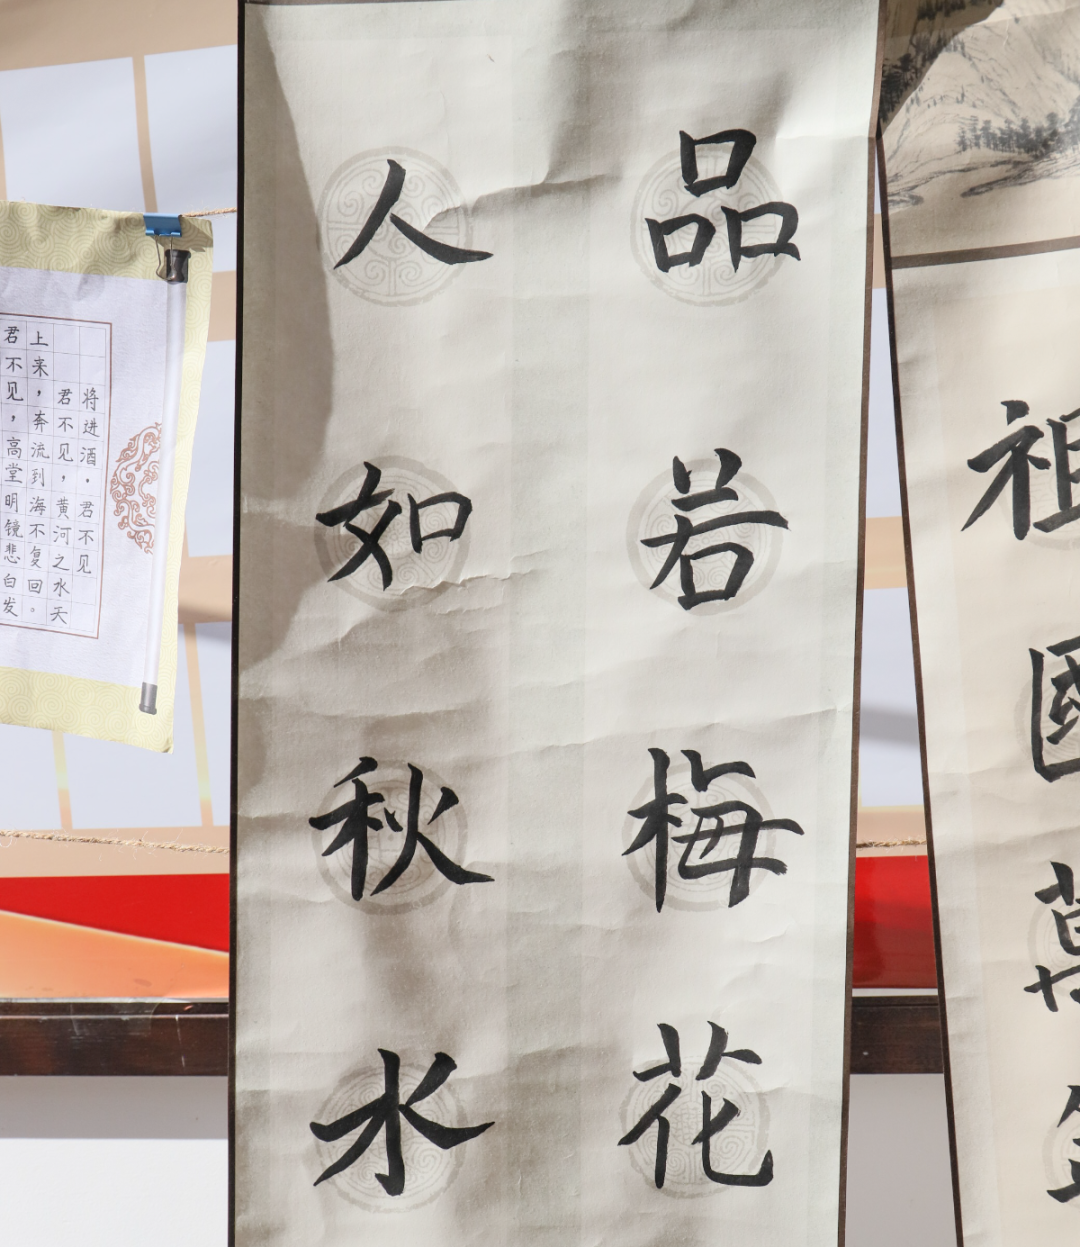 祖國萬
品若梅花
人如秋水
将进酒·君不见
君不见，黄河之水天
上来，奔流到海不复回。
君不见，高堂明镜悲白发